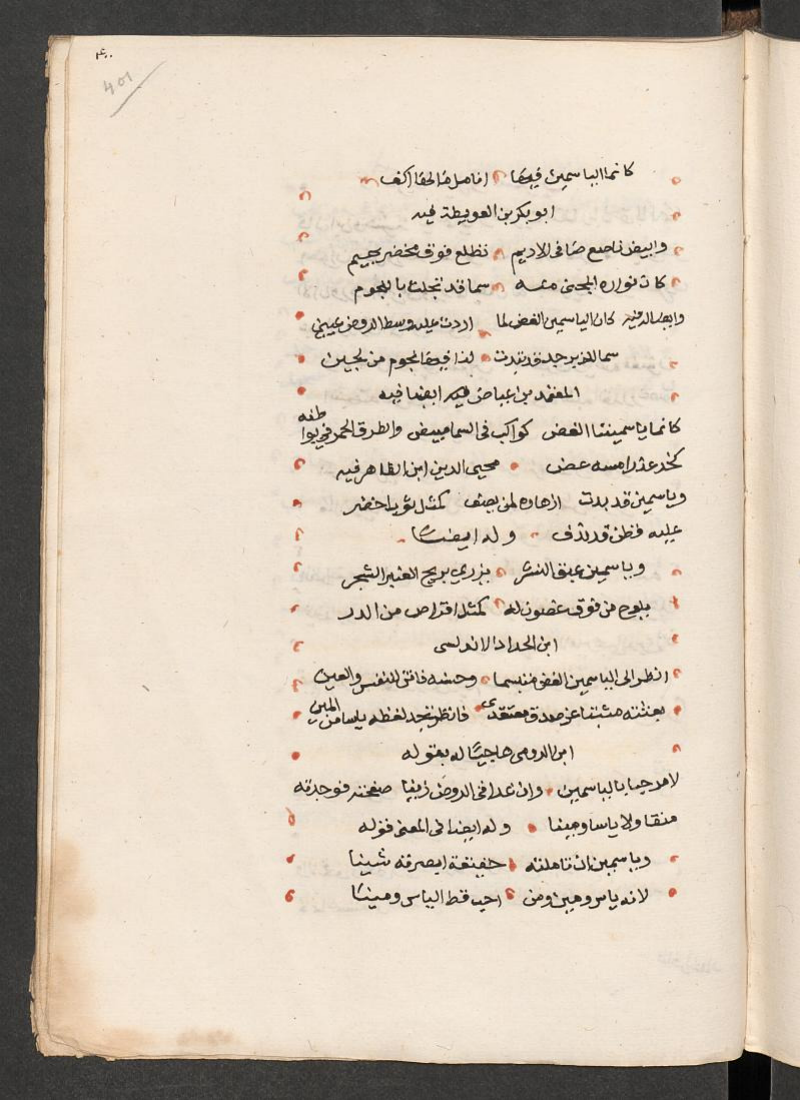 ٤٠٠
401
كانما الياسمين فيها انامل مالها اكف
ابو بكر بن القوطية فيه
وابيض ناصع صافي الاديم تطلع فوق مخضر بهيم
كان نواره المجنى منه سما قد تجلت بالنجوم
وايضا لدفيه كان الياسمين الغض لما ادرت عليه وسط الروض عيني
سما للزبرجد قد تبدت لنا فيها نجوم من لجين
المعتمد بن عباض فيه ايضا فيه
كانما ياسميننا الغض كواكب في السما مبيض والطرق الحمر في بواطنه
كخد عذرا مسه عض محيى الدين ابن الظاهر فيه
وياسمين قد بدت ازهاره لمن يصف كمثل ثوب اخضر
عليه قطن قد ندف وله ايضا
وياسمين عبق النشر يزري بريح العنبر الشجر
يلوح من فوق غصون له كمثل اقراص من الدر
ابن الحداد الاندلسى
انظر الى الياسمين الغض مبتسما وحسنه فاتن للنفس والعين
بعثته مثبتا عن صدق معتقدي فانظر تجد لفظه ياسا من المين
ابن الرومى هاجيا له بقوله
لا مرحبا بالياسمين وان غدا في الروض زينا صحفته فوجدته
متقابلا ياسا ومينا وله ايضا في المعنى قوله
وياسمين ان تاملته حقيقة ابصرته شينا
لانه ياس ومين ومن احب قط الياس ومينا